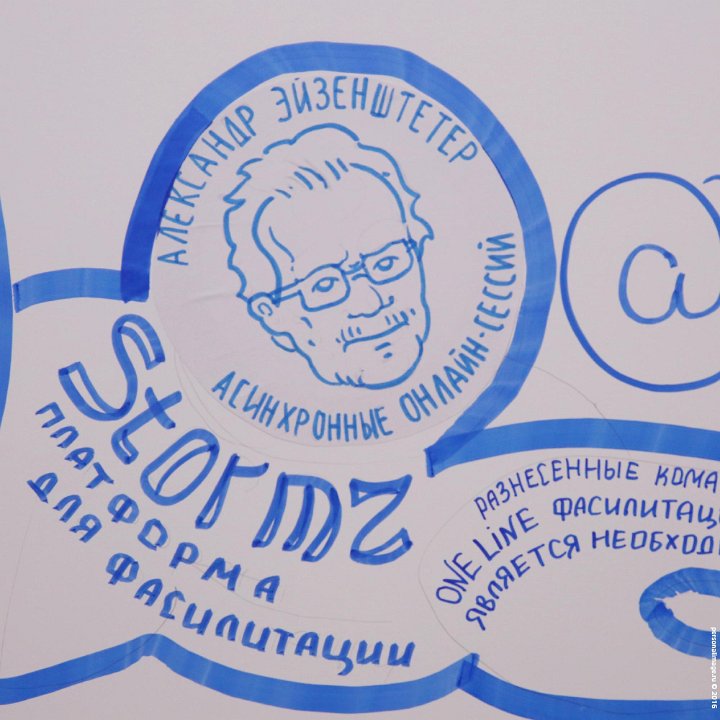 АЛЕКСАНДР ЭЙЗЕНШТЕТЕР
АСИНХРОННЫЕ ОНЛАЙН-СЕССИЙ
Stormz
ПЛАТФОРМА
ДЛЯ ФАСИЛИТАЦИИ
@
РАЗНЕСЕННЫЕ КОМА
ONE LINE ФАСИЛИТАЦ
ЯВЛЯЕТСЯ НЕОБХОД
personalimage.ru © 2016